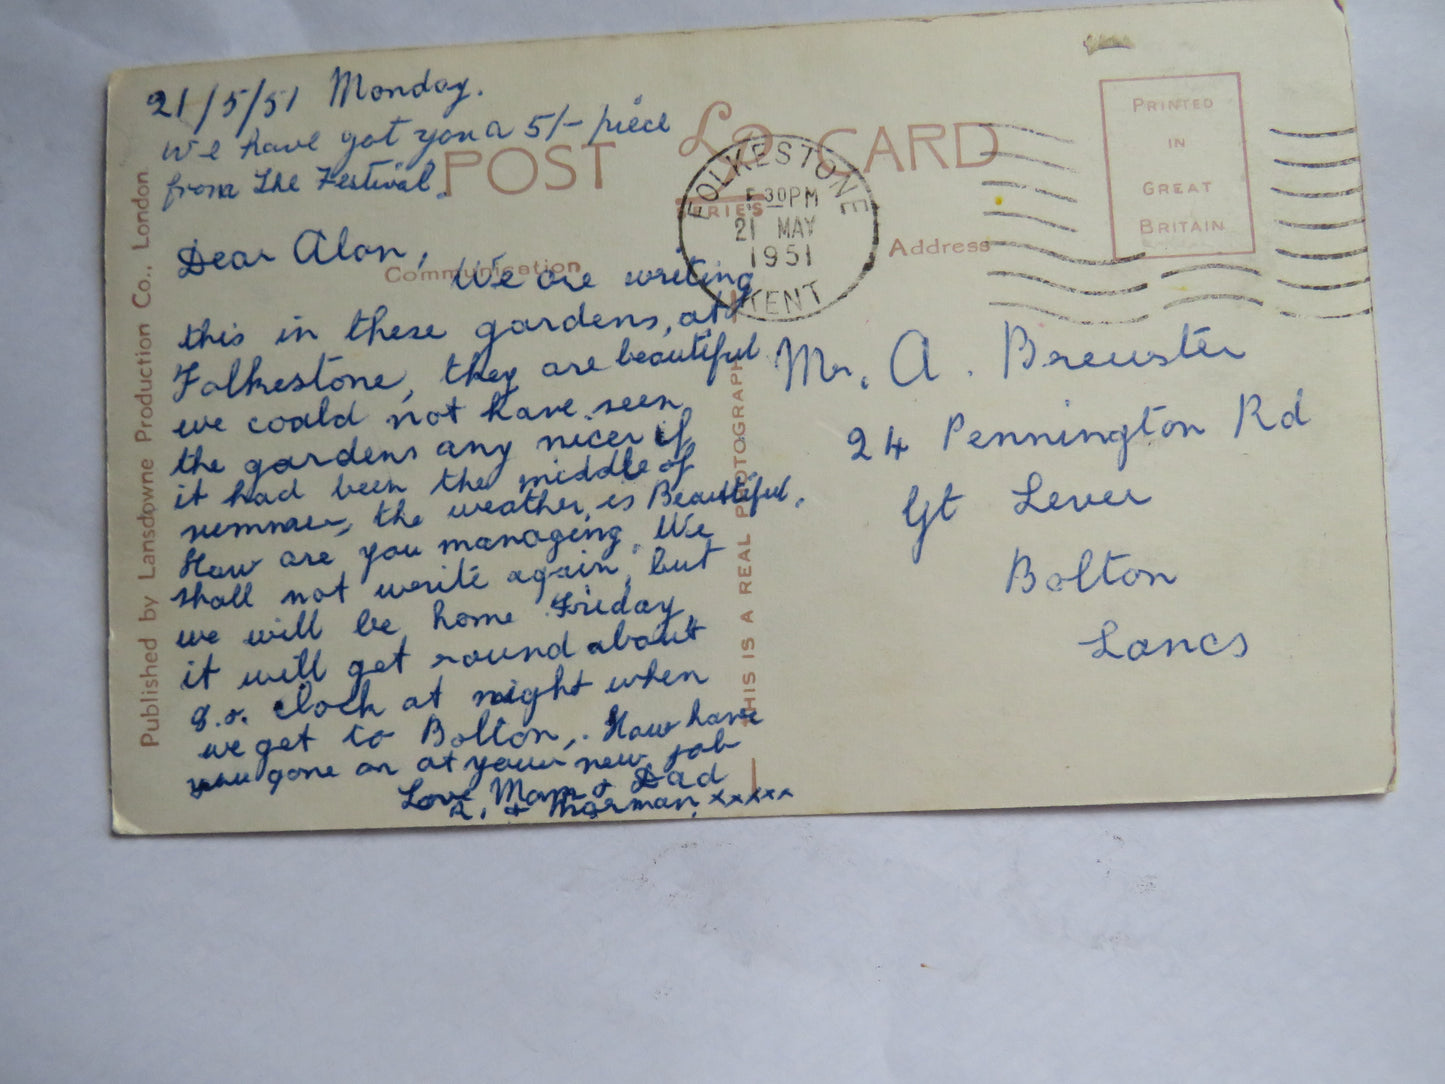 21/5/51 Monday.
We have got you a 5/- piece
from The Festival.
POST CARD
LD
SERIES
FOLKESTONE
30PM
21 MAY
1951
KENT
PRINTED
IN
GREAT
BRITAIN
Communication
Address
Dear Alan,
We are writing
this in these gardens, at
Folkestone, they are beautiful
we could not have seen
the gardens any nicer if
it had been the middle of
summer, the weather, is Beautiful.
How are you managing. We
shall not write again, but
we will be home Friday
it will get round about
8.o. clock at night when
we get to Bolton,. How have
you gone on at your new job
Love Mam & Dad
& Norman. xxxxx
Mr. A. Brewster
24 Pennington Rd
Gt Lever
Bolton
Lancs
Published by Lansdowne Production Co., London
THIS IS A REAL PHOTOGRAPH